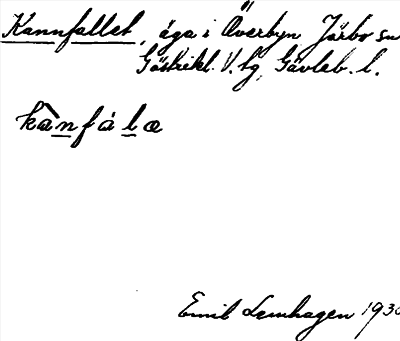 Kannfallet, äga i Överbyn Järbo sn
Gästrikl. V. tg, Gävleb. l.
kànfálæ
Emil Lemhagen 1930